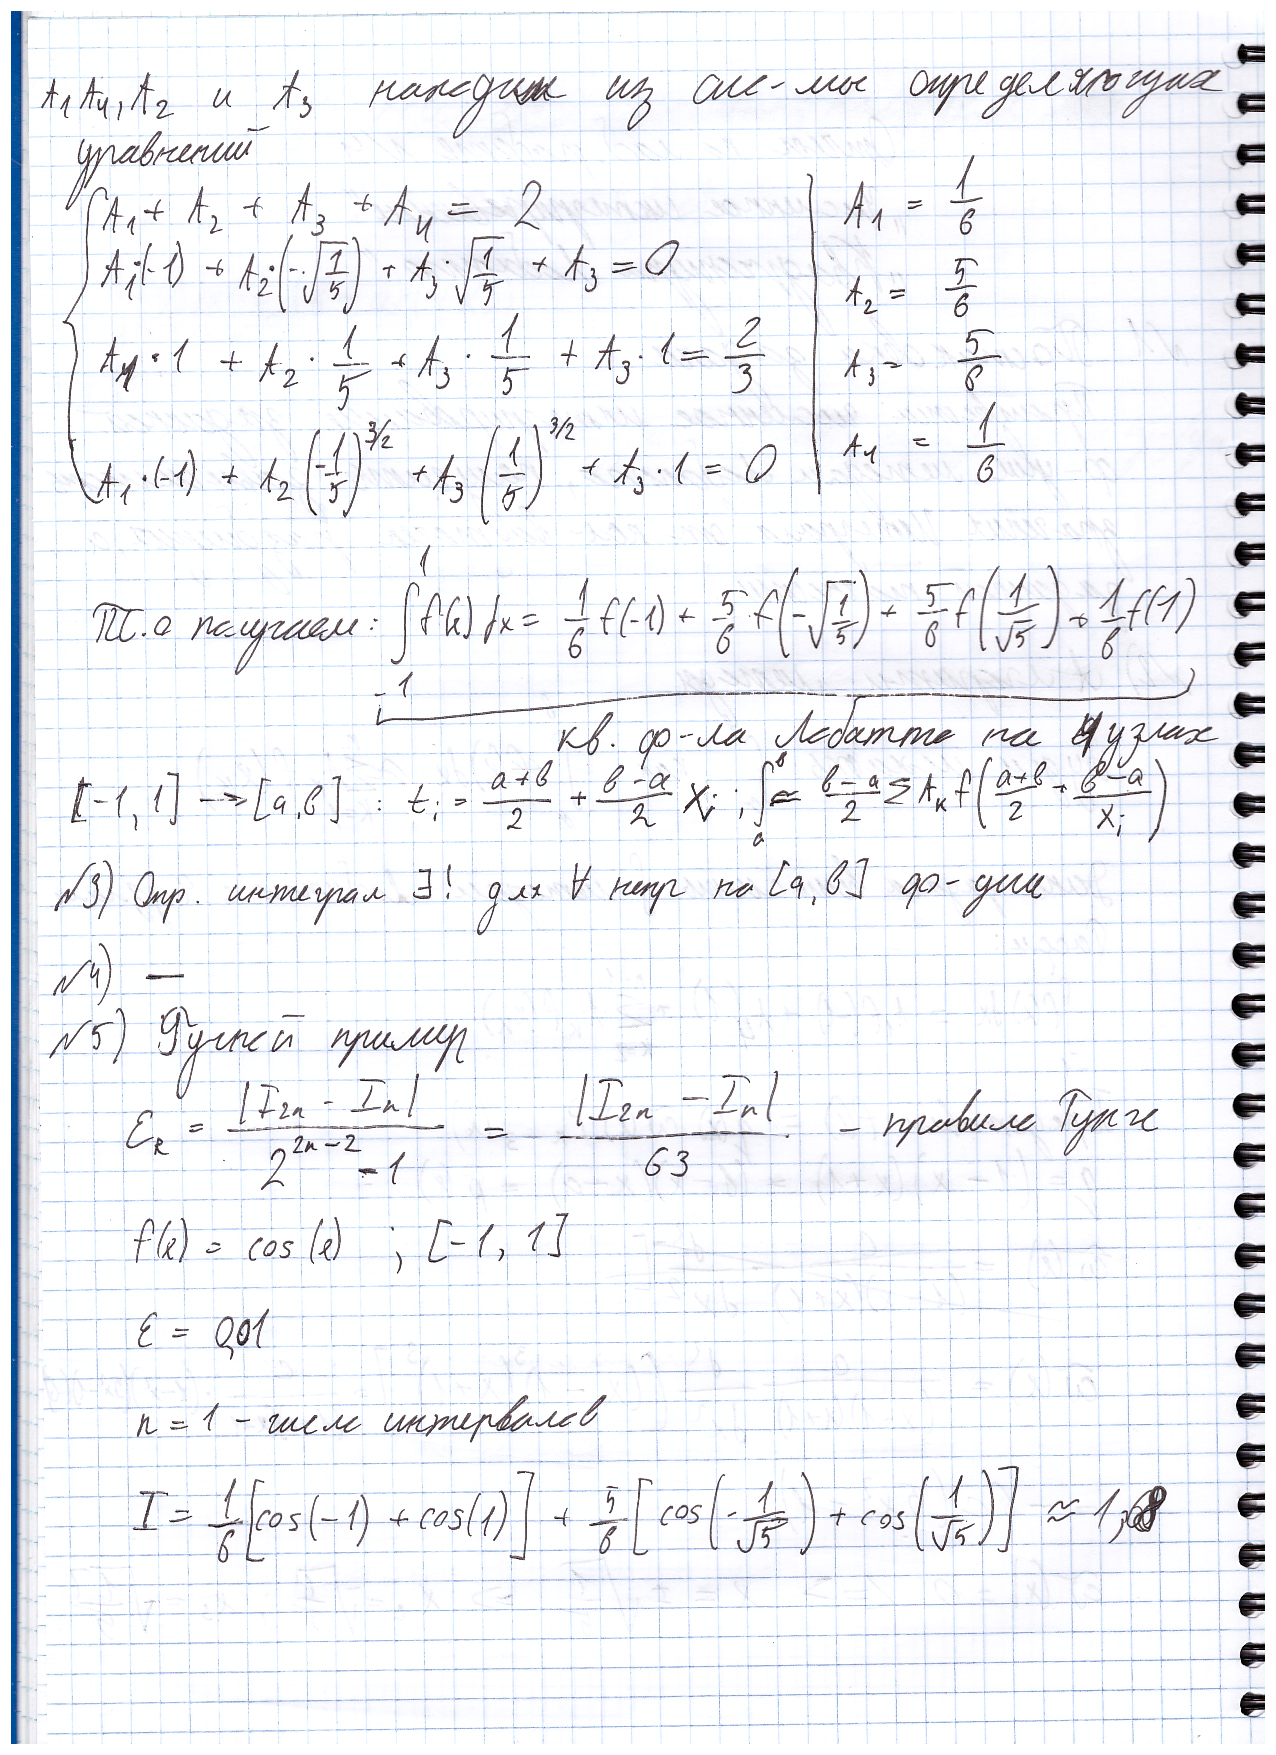 A₁ A₄, A₂ и A₃ находим из сис-мы определяющих
уравнений
A₁ + A₂ + A₃ + A₄ = 2
A₁·(-1) + A₂·(-√(1/5)) + A₃·√(1/5) + A₃ = 0
A₁·1 + A₂·1/5 + A₃·1/5 + A₃·1 = 2/3
A₁·(-1) + A₂(-1/5)^(3/2) + A₃(1/5)^(3/2) + A₃·1 = 0
A₁ = 1/6
A₂ = 5/6
A₃ = 5/6
A₁ = 1/6
Т.о получаем: ∫₋₁¹ f(x)dx = 1/6 f(-1) + 5/6 f(-√(1/5)) + 5/6 f(1/√5) + 1/6 f(1)
кв. ф-ла Лобатто на 4 узлах
[-1, 1] → [a, b] : tᵢ = (a+b)/2 + (b-a)/2 xᵢ ; ∫ₐᵇ ≈ (b-a)/2 Σ Aₖ f((a+b)/2 + (b-a)/xᵢ)
№3) Опр. интеграл ∃! для ∀ непр на [a, b] ф-ции
№4) —
№5) Ручной пример
ε_R = |I₂ₙ - Iₙ| / (2^(2n-2) - 1) = |I₂ₙ - Iₙ| / 63 - правило Рунге
f(x) = cos(x) ; [-1, 1]
ε = 0,01
n = 1 - число интервалов
I = 1/6 [cos(-1) + cos(1)] + 5/6 [cos(-1/√5) + cos(1/√5)] ≈ 1,68